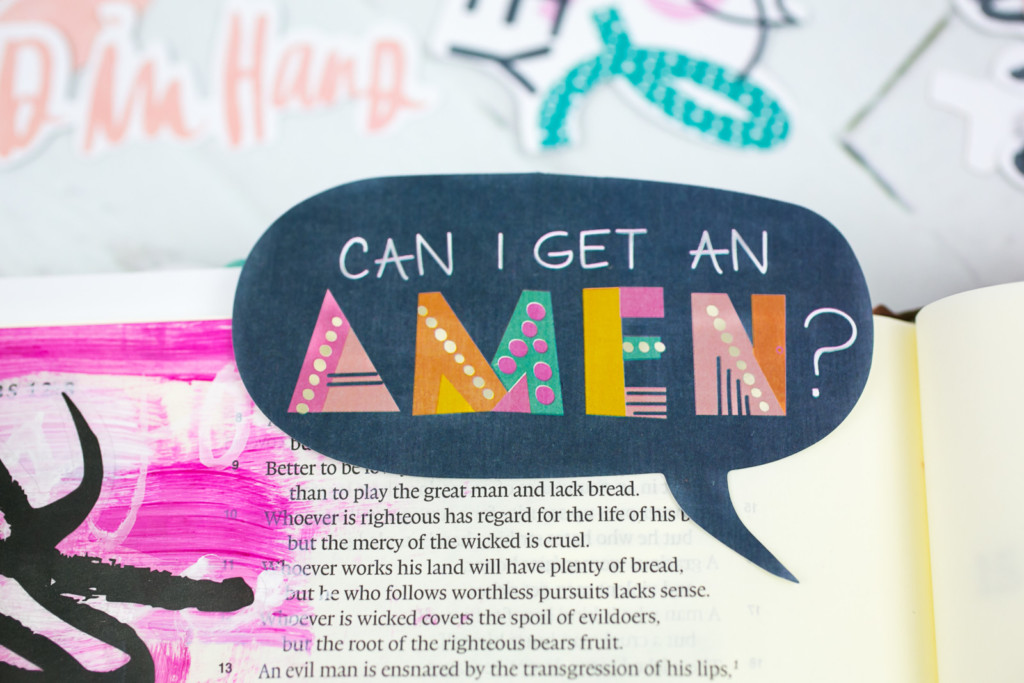 D in Hand
CAN I GET AN
AMEN?
8
9 Better to be
than to play the great man and lack bread.
10 Whoever is righteous has regard for the life of his
but the mercy of the wicked is cruel.
11 Whoever works his land will have plenty of bread,
but he who follows worthless pursuits lacks sense.
Whoever is wicked covets the spoil of evildoers,
but the root of the righteous bears fruit.
13 An evil man is ensnared by the transgression of his lips,¹